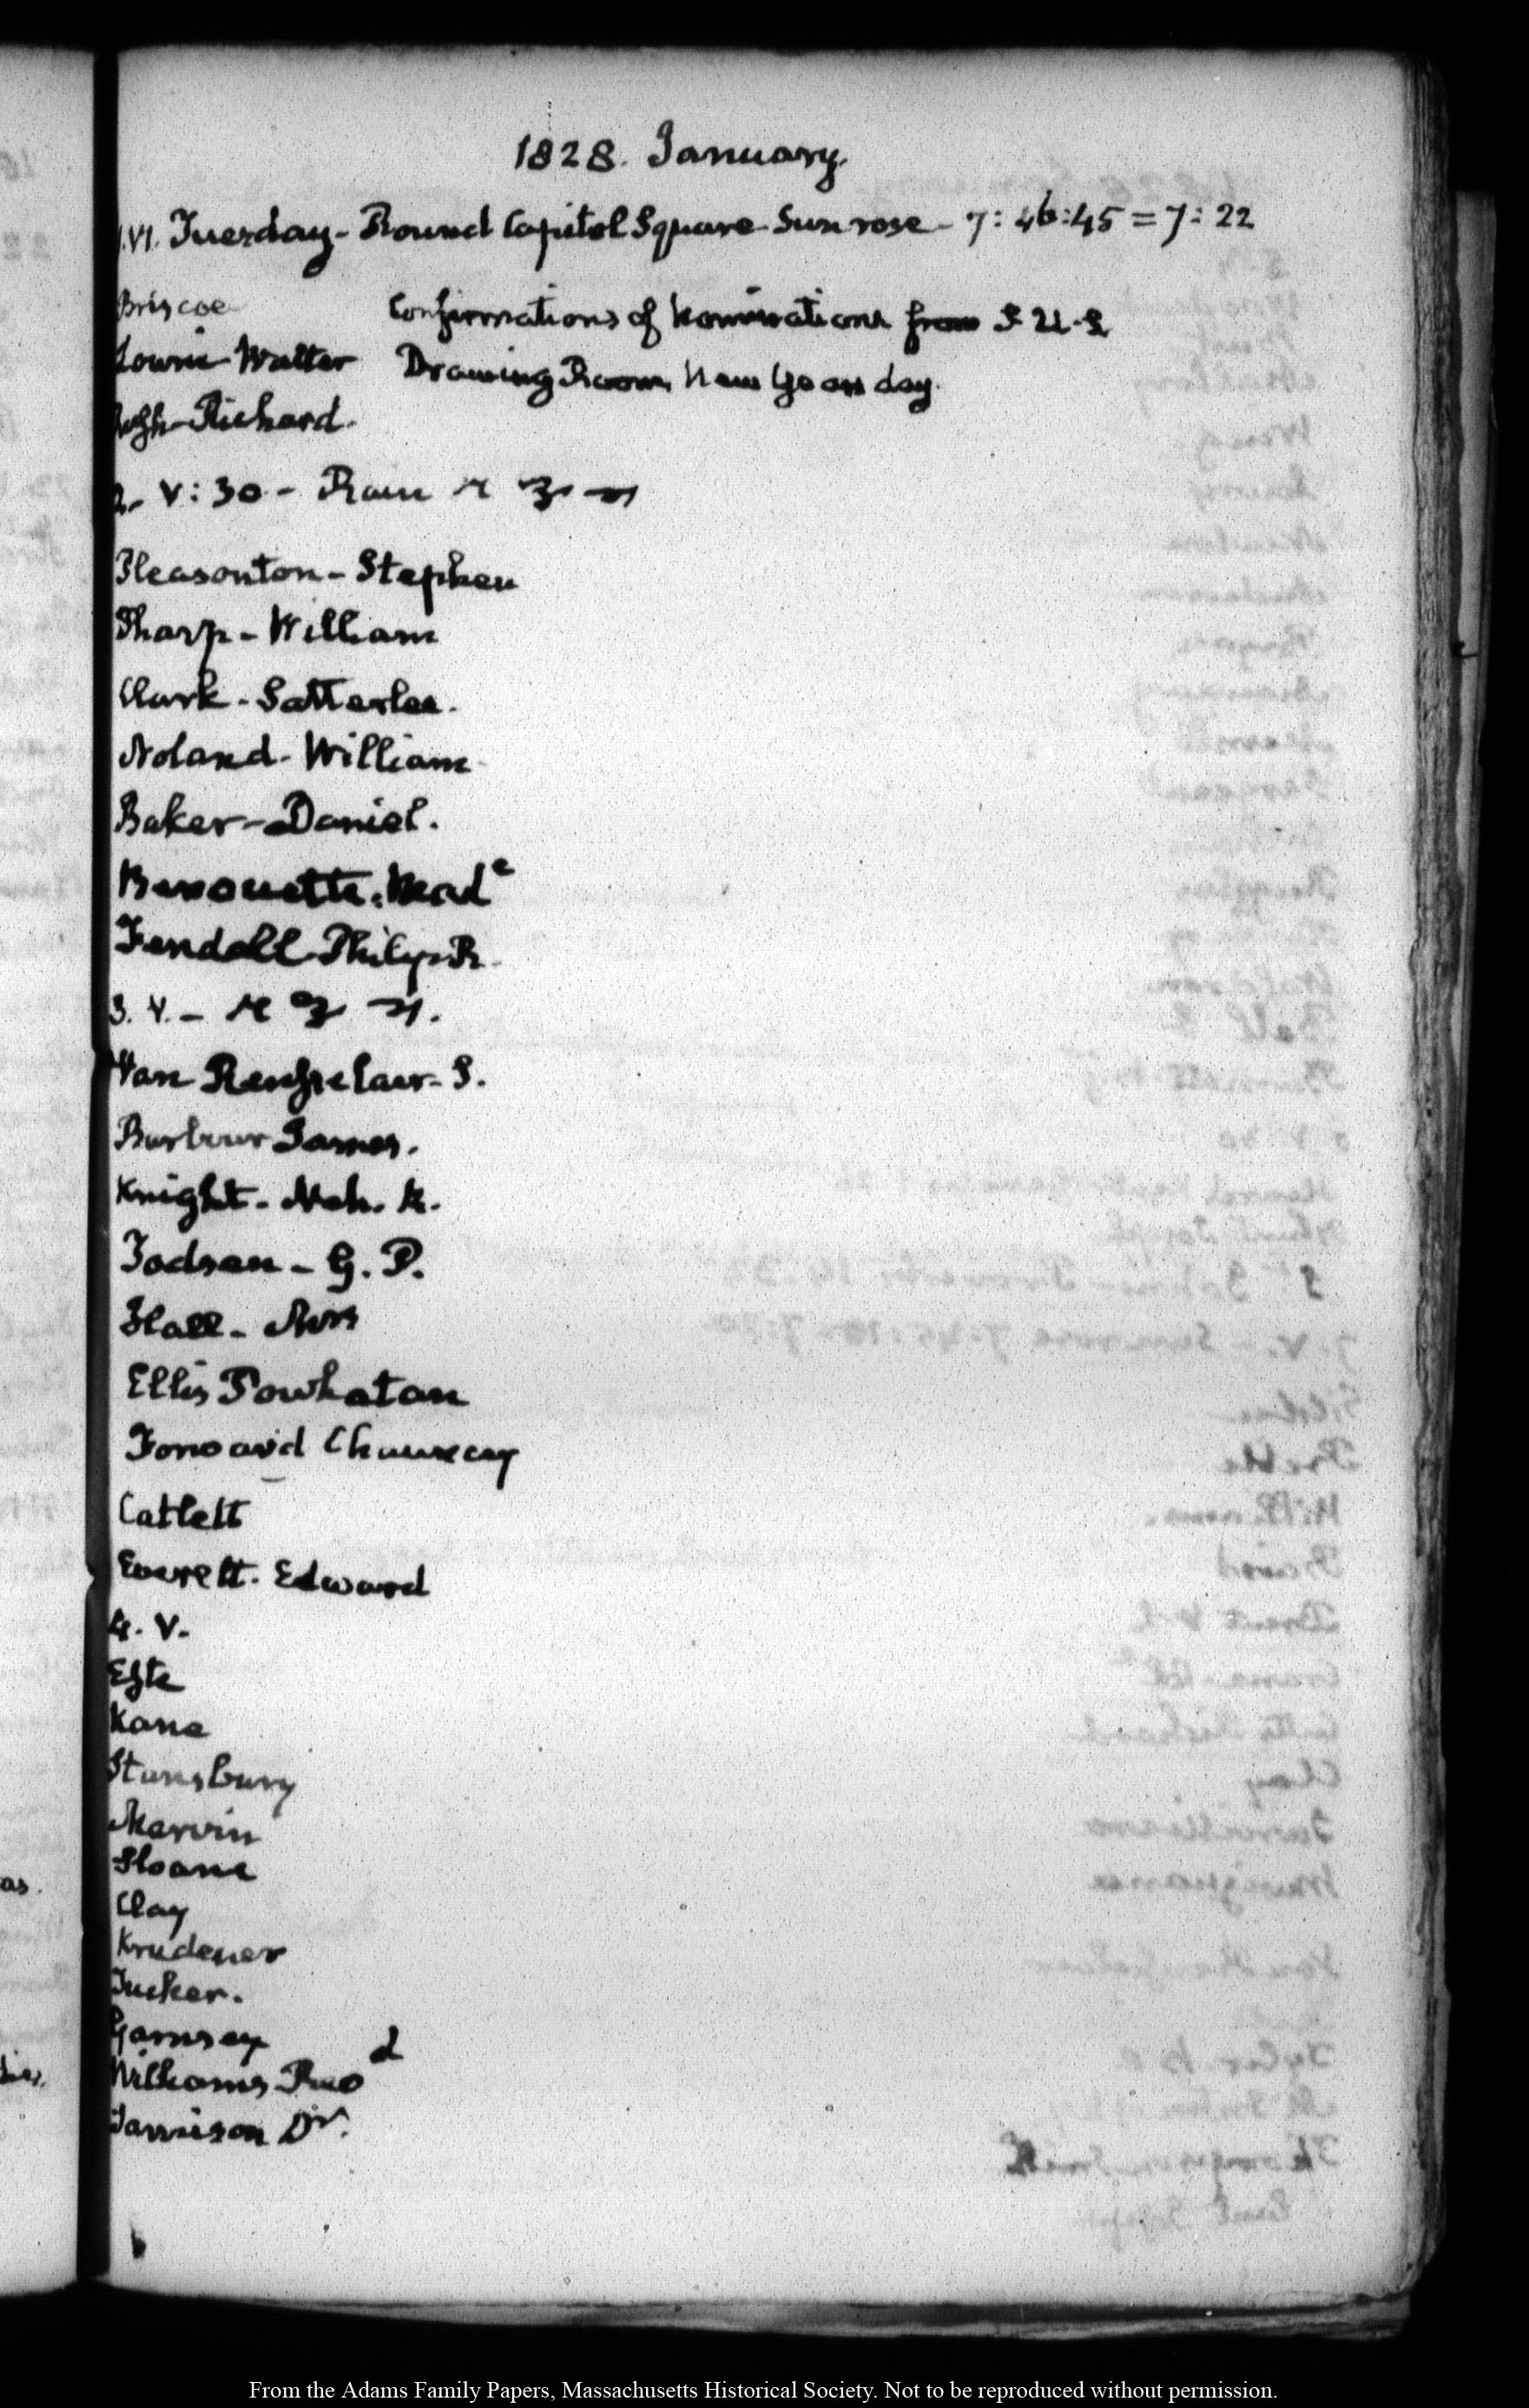 1828. January.
1. VI. Tuesday - Round Capitol Square - Sun rose - 7:46:45 = 7:22
Briscoe
Confirmations of Nominations from S U.S
Lowrie Walter
Drawing Room New Years day.
Rush Richard.
2. V:30 - Rain
Pleasonton - Stephen
Tharp - William
Clark - Satterlee.
Noland - William
Baker - Daniel.
Mad^e
Fendall Philip R.
3. V. -
Van Rensselaer - S.
Barbour James.
Knight - Neh. R.
Todsen - G. P.
Hall - Mrs
Ellis Powhatan
Forward Chauncey
Catlett
Everett - Edward
4. V.
Este
Kane
Stansbury
Marvin
Sloane
Clay
Krudener
Tucker.
Garnsey
Williams
Jamison Dr.
From the Adams Family Papers, Massachusetts Historical Society. Not to be reproduced without permission.